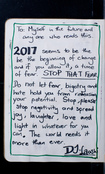 To: Myself in the future and
any one who reads this.
2017 seems to be the
be the beginning of change
and if you allow it, a time
of fear. STOP THAT FEAR.
Do not let fear, bigotry and
hate hold you from
your potential. Stop, please
stop negativity and spread
joy, laughter, love and
light in whatever for you
can. The world needs it
more than ever.